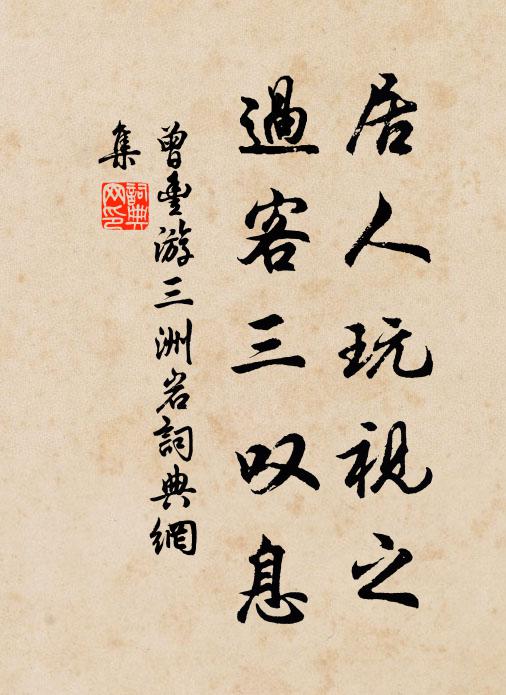 居人玩視之
過客三叹息
曾豊游三洲岩詞典網
集
詞典
网印